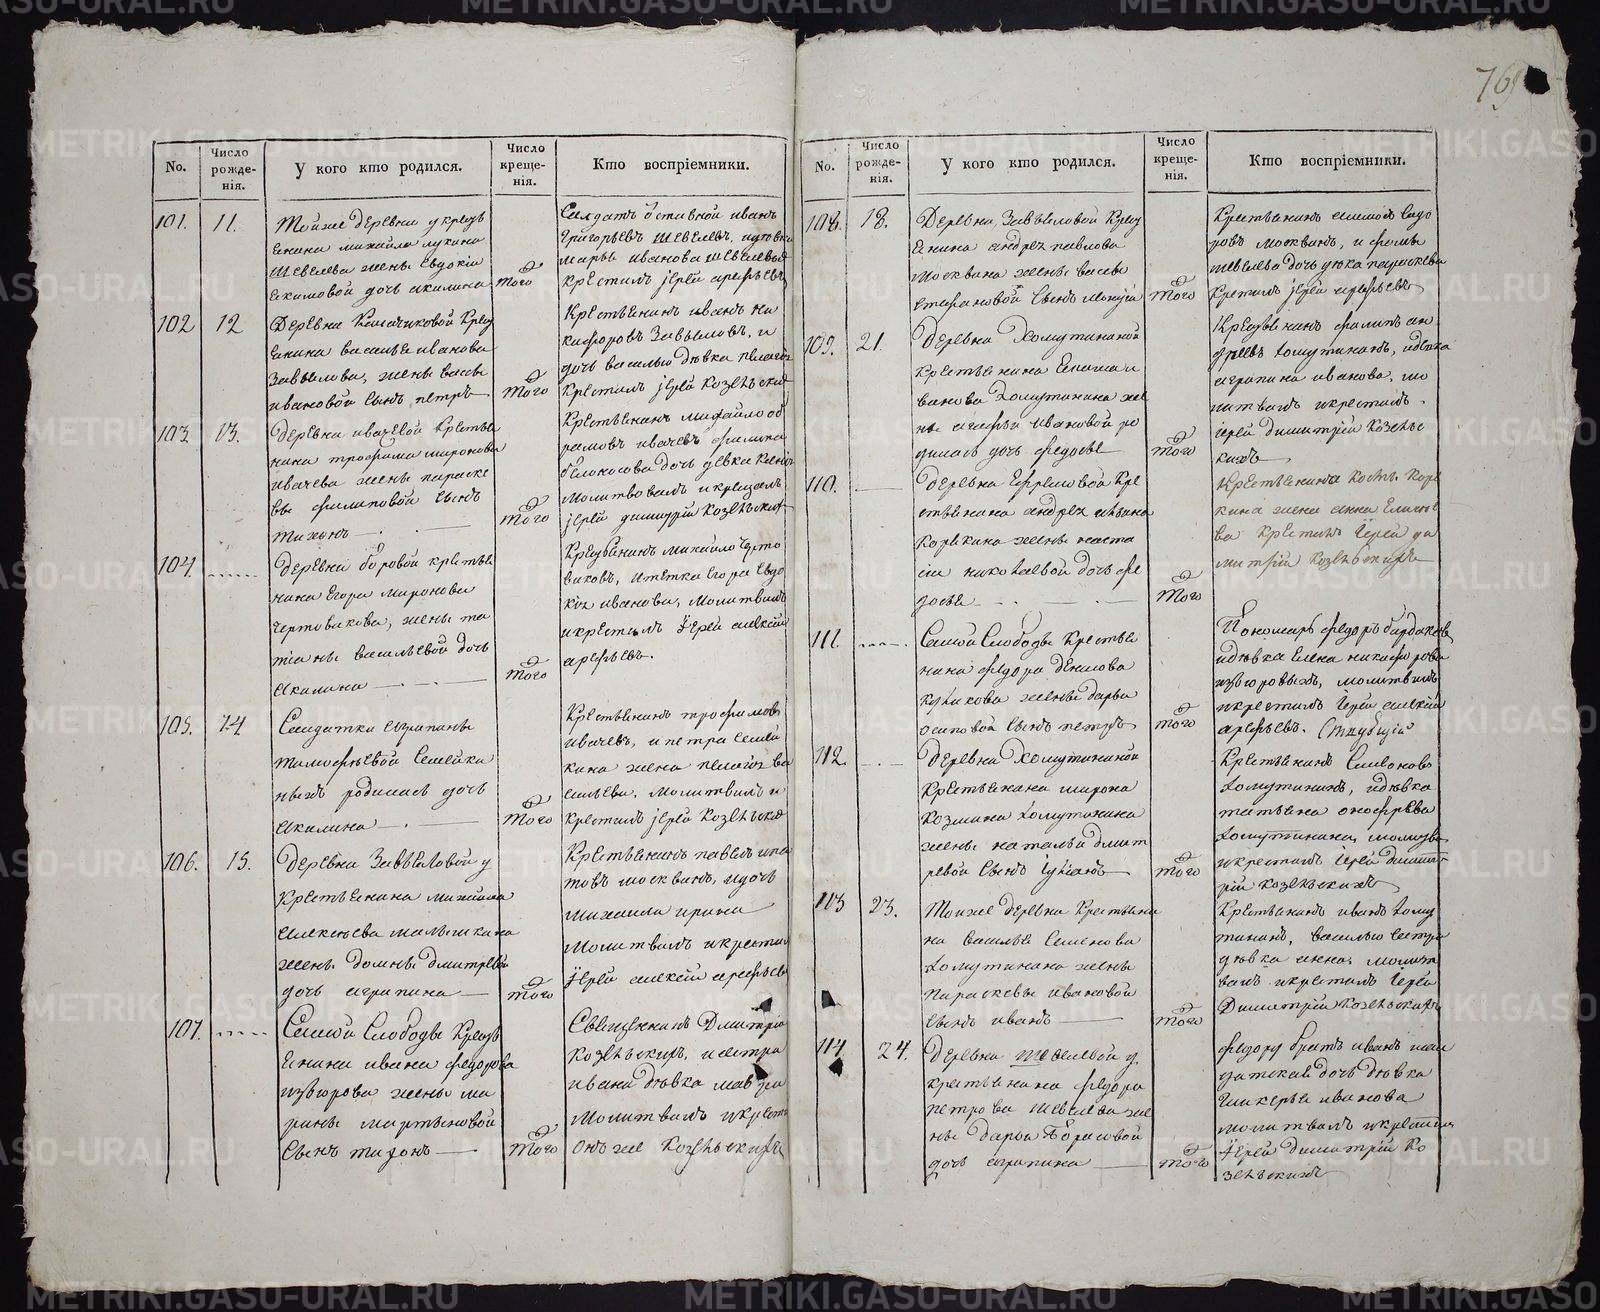 769
No.
Число рожде-нія.
У кого кто родился.
Число креще-нія.
Кто воспріемники.
101.
11.
Тойже деревни у кресть
янина михайла лукина
Шевелева жены Евдокіи
Екимовой дочь акилина
того
Салдатъ оставной иванъ
Григорьевъ Шевелевъ,
марья иванова Шевелева
крестилъ іерей арефьевъ
102
12
Деревни Крес
янина василья иванова
Завьялова, жены
ивановой сынъ петръ
того
Крестьянинъ иванъ ни
кифоровъ Завьяловъ, и
дочь василью дѣвка пелагея
крестилъ іерей Козельскихъ
103.
13.
деревни ивачевой крестья
нина трофима миронова
ивачева жены параске
вы филиповой сынъ
тихонъ
того
Крестьянинъ михайло аб
рамовъ ивачевъ филипа
белоносова дочь девка
молитвовалъ и крещалъ
іерей димитрій Козельскихъ
104.
деревни боровой крестья
нина Егора миронова
чертовикова, жены та
тіаны васильевой дочь
акилина
того
Крестьянинъ михайло черто
виковъ, и тетка Егора Евдо
кія иванова, молитвилъ
и крестилъ іерей алексей
арефьевъ.
105.
14
Салдатки агрипины
тимофеевой
ныхъ родилась дочь
акилина
того
Крестьянинъ трофимовъ
ивачевъ, и петра семей
кина жена пелагея ва
сильева. молитвилъ и
крестилъ іерей Козельскихъ
106.
15.
деревни Завьяловой у
крестьянина михайла
алексеева малышкина
жены домны дмитревой
дочь агрипина
того
Крестьянинъ павелъ
товъ москвинъ, и дочь
михаила ирина
молитвилъ и крестил
іерей алексей арефьевъ
107.
Самой Слободы Кресть
янина ивана федорова
изгорова жены ма
рины мартыновой
сынъ тихонъ
того
Священникъ Дмитрій
Козельскихъ, и сестра
ивана дѣвка мавра
молитвилъ и крести
онъ же Козельскихъ
No.
Число рожде-нія.
У кого кто родился.
Число креще-нія.
Кто воспріемники.
108.
18.
Деревни Завьяловой Крес
янина андрея павлова
москвина жены васевы
стефановой сынъ
того
Крестьянинъ сидо
ровъ москвинъ, и фомы
шевелева дочь дѣвка параскева
крестилъ іерей арефьевъ
109.
21.
Деревни Хомутининой
крестьянина и
ванова хомутинина же
ны агафьи ивановой ро
дилась дочь федосья
того
Крестьянинъ филипъ ан
дреевъ хомутининъ, и дѣвка
агрипина иванова, мо
литвилъ и крестилъ.
іерей димитрій Козельс
кихъ
110.
деревни Ефремовой кре
стьянина андрея
корякина жены наста
сіи николаевой дочь фе
досья
того
Крестьянинъ коря
кина жена анна
ва крестилъ іерей ди
митрій Козельскихъ
111.
Самой Слободы крестья
нина федора денилова
куликова жены дарьи
осиповой сынъ петръ
того
Пономарь федоръ бардаковъ
и дѣвка Елена никифорова
изгоровыхъ, молитвилъ
и крестилъ іерей алексей
арефьевъ.
112.
деревни Хомутининой
крестьянина мирона
козмина хомутинина
жены натальи дмит
ревой сынъ
того
Крестьянинъ Симеоновъ
хомутининъ, и дѣвка
татьяна онофреева
хомутинина, молитв
и крестилъ іерей димит
рій козельскихъ
113
23.
Тойже деревни Крестьяни
на василья семенова
хомутинина жены
параскевы ивановой
сынъ иванъ
того
Крестьянинъ иванъ хому
тининъ, василью сестра
дѣвка анна, молит
вилъ и крестилъ іерей
Димитрій Козельскихъ
114.
24.
Деревни Шевелевой у
крестьянина федора
петрова шевелева же
ны дарьи борисовой
дочь агрипина
того
федору братъ иванъ
дочь дѣвка
гликерья иванова
молитвилъ и крестилъ
іерей димитрій Ко
зельскихъ